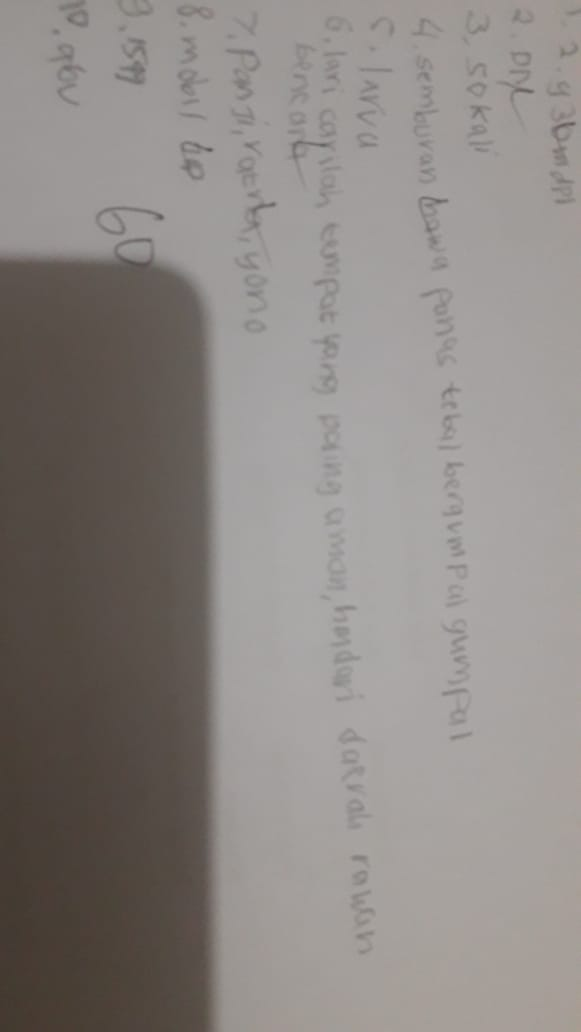 1. 2.936mdpl
2. DIY
3. 50 kali
4. semburan hawa panas tebal bergumpal gumpal
5. larva
6. lari carilah tempat yang paling aman, hindari daerah rawan
bencana
7. Panji, ratna, yono
8. mobil
9. 1599
10. abu
60